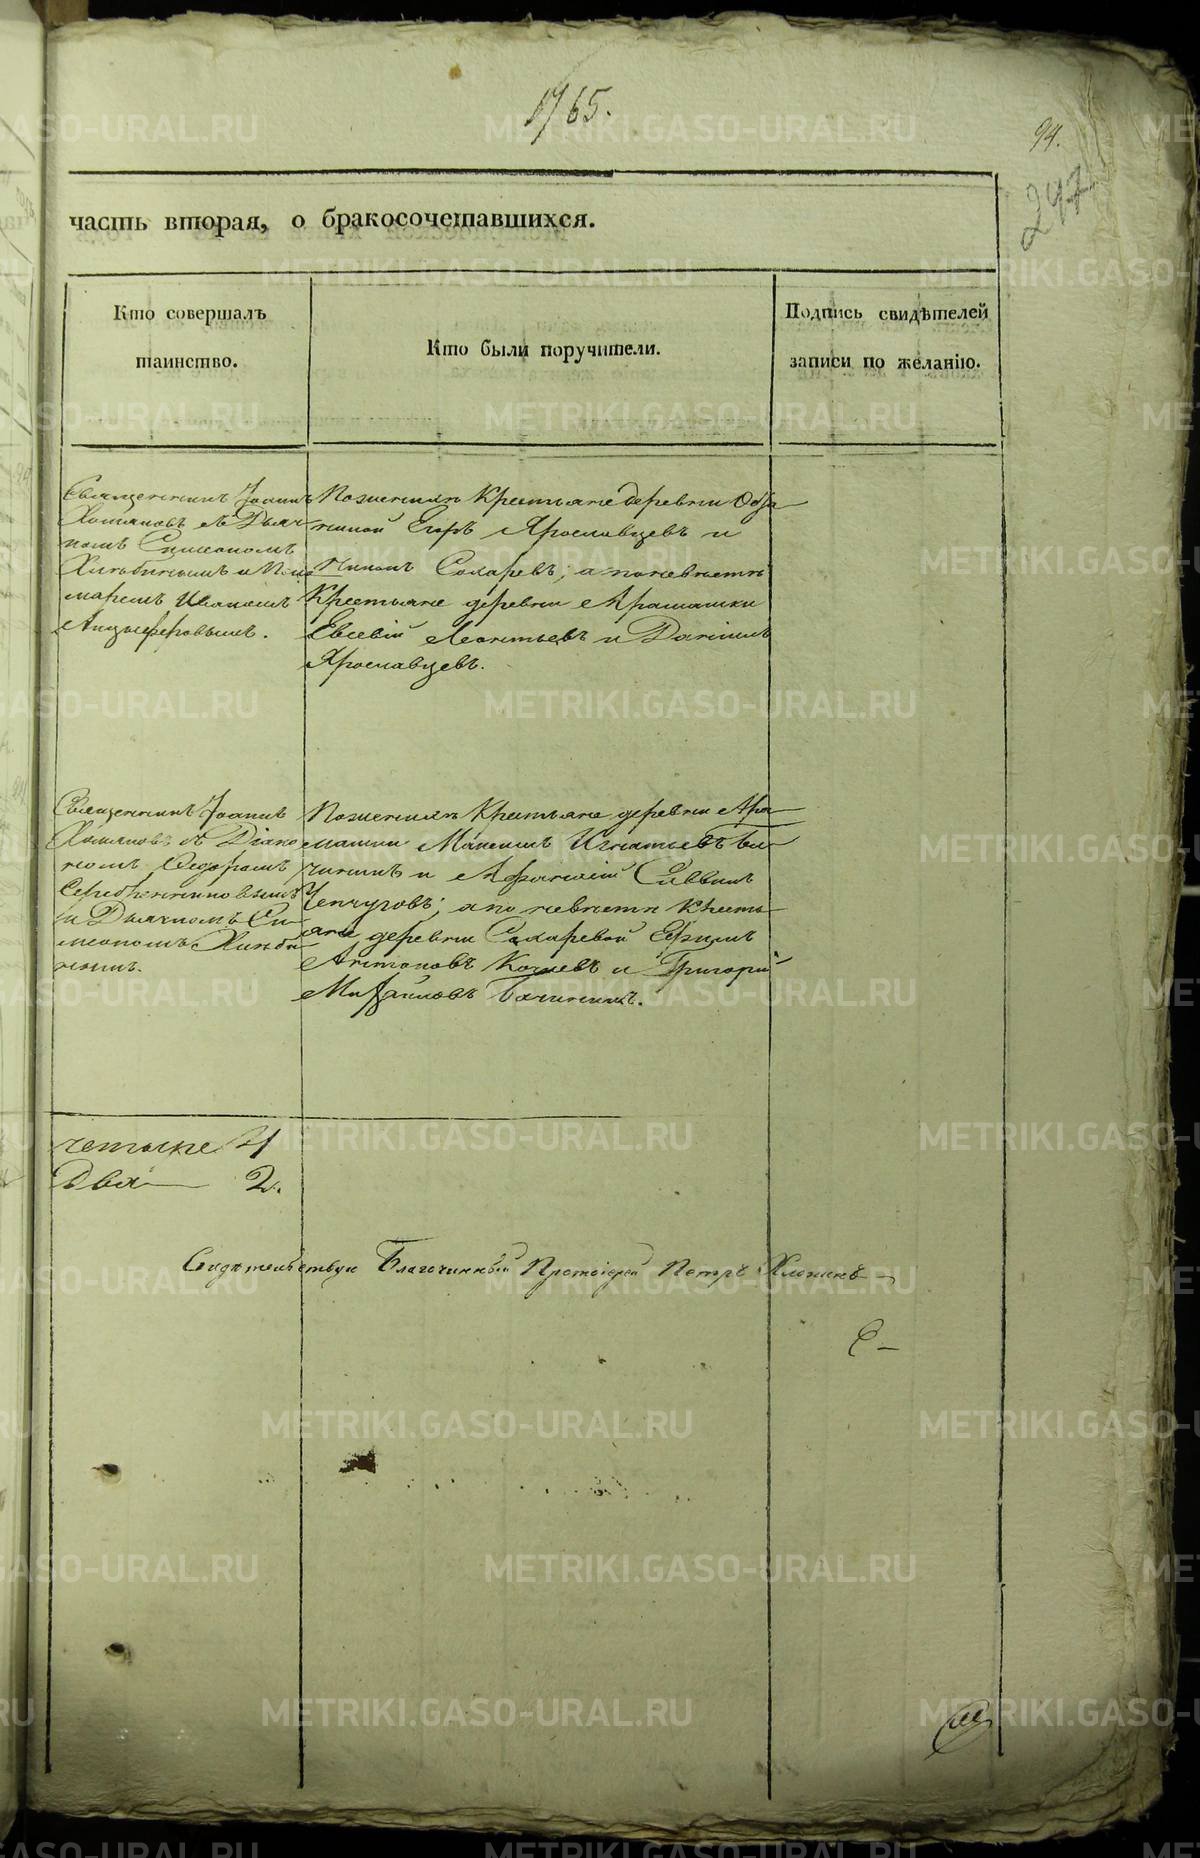 1765.
94.
247
часть вторая, о бракосочетавшихся.
Кто совершалъ
таинство.
Кто были поручители.
Подпись свидѣтелей
записи по желанію.
Священникъ Іоаннъ
съ Дьяч
комъ Симеономъ
и Поно
маремъ Иваномъ
Анцыферовымъ.
По женихѣ Крестьяне деревни
Егоръ Ярославцевъ и
Сохаревъ; а по невѣстѣ
Крестьяне деревни Арамашки
Евсевій Леонтьевъ и Даніилъ
Ярославцевъ.
Священникъ Іоаннъ
съ Діако
номъ Ѳедоромъ
Серебренниковымъ
и Дьячкомъ Си
меономъ Хлѣби
нымъ.
По женихѣ Крестьяне деревни Ара
машки Максимъ Игнатьевъ
и Афанасій Саввинъ
Чепчуговъ; а по невѣстѣ Кресть
яне деревни Сохаревой Ефимъ
Антоновъ и Григорій
Михайловъ Бачининъ.
четыре 4
Два 2.
Свидѣтельствую Благочинный Протоіерей Петръ
METRIKI.GASO-URAL.RU